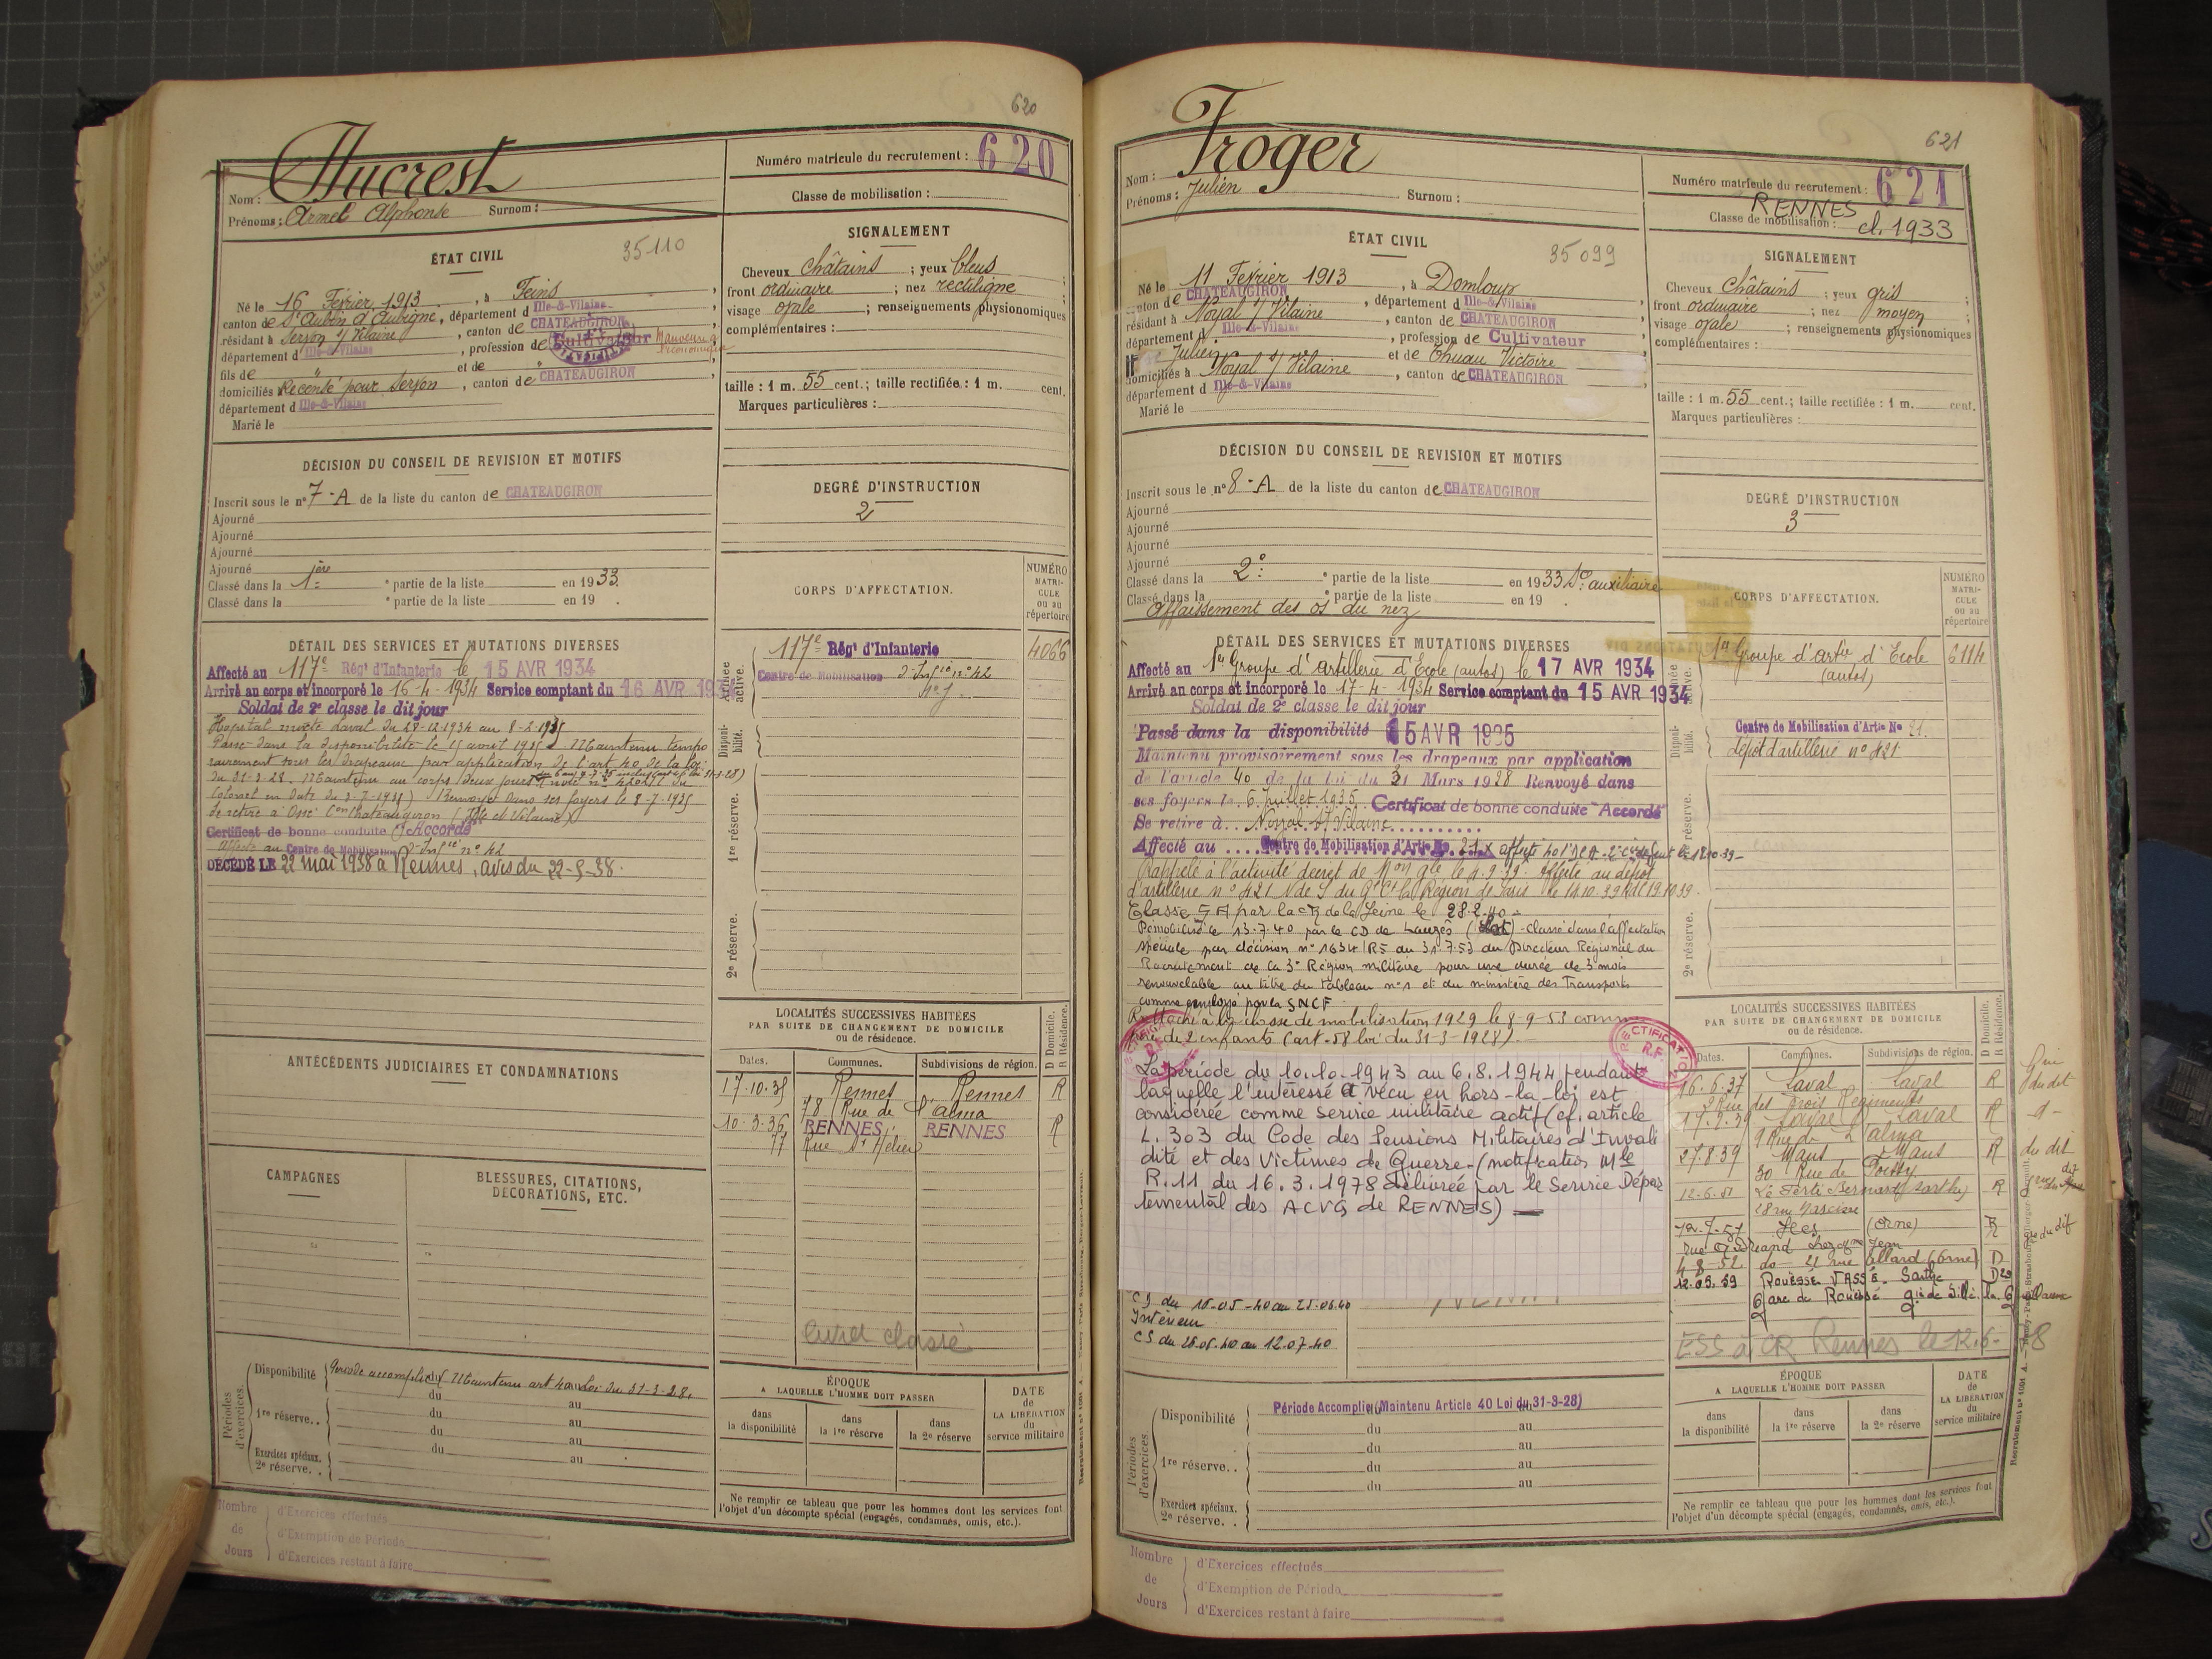 620
Nom : Ducrest
Prénoms : Armel Alphonse Surnom :
Numéro matricule du recrutement : 620
Classe de mobilisation :
ÉTAT CIVIL
35110
Né le 16 Février 1913, à Feins,
canton de St Aubin d'Aubigné, département d Ille-&-Vilaine
résidant à Servon s/ Vilaine, canton de CHATEAUGIRON,
département d Ille-&-Vilaine, profession de Cultivateur
fils de " et de "
domiciliés Recensé pour Servon, canton de CHATEAUGIRON,
département d Ille-&-Vilaine
Marié le
SIGNALEMENT
Cheveux châtains ; yeux bleus ;
front ordinaire ; nez rectiligne ;
visage ovale ; renseignements physionomiques
complémentaires :
taille : 1 m. 55 cent.; taille rectifiée : 1 m. cent.
Marques particulières :
DÉCISION DU CONSEIL DE REVISION ET MOTIFS
Inscrit sous le n° 7-A de la liste du canton de CHATEAUGIRON
Ajourné
Ajourné
Ajourné
Ajourné
Classé dans la 1ère partie de la liste en 1933.
Classé dans la ° partie de la liste en 19 .
DEGRÉ D'INSTRUCTION
2
DÉTAIL DES SERVICES ET MUTATIONS DIVERSES
Affecté au 117e Régt d'Infanterie le 15 AVR 1934
Arrivé au corps et incorporé le 16-4-1934 Service comptant du 16 AVR 193
Soldat de 2e classe le dit jour
Hopital mixte Laval du 28-12-1934 au 8-2-1935
Passé dans la disponibilité le 15 avril 1935. Maintenu tempo
rairement sous les drapeaux par application de l'art 40 de la loi
du 31-3-28. Maintenu au corps deux jours
Colonel en date du 3-7-1935) Renvoyé dans ses foyers le 8-7-1935
Se retire à Ossé Con Chateaugiron (Ille et Vilaine)
Certificat de bonne conduite "Accordé"
Affecté au Centre de Mobilisation d'Infie n° 42
DÉCÉDÉ LE 22 mai 1938 à Rennes, avis du 22-5-38.
CORPS D'AFFECTATION.
NUMÉRO MATRICULE ou au répertoire
Armée active.
117e Régt d'Infanterie 4066
Centre de Mobilisation d'Infie n° 42
Disponibilité.
1re réserve.
2e réserve.
ANTÉCÉDENTS JUDICIAIRES ET CONDAMNATIONS
CAMPAGNES
BLESSURES, CITATIONS, DÉCORATIONS, ETC.
LOCALITÉS SUCCESSIVES HABITÉES
PAR SUITE DE CHANGEMENT DE DOMICILE
ou de résidence.
D Domicile. R Résidence.
Dates. Communes. Subdivisions de région.
17-10-35 Rennes Rennes R
78 Rue de l'alma
10-3-36 RENNES RENNES R
77 Rue St Hélier
livret classé
Périodes d'exercices.
Disponibilité Période accomplie Maintenu art 40 Loi du 31-3-28.
du au
1re réserve.. du au
du au
Exercices spéciaux. 2e réserve. . du au
ÉPOQUE
A LAQUELLE L'HOMME DOIT PASSER
dans la disponibilité
dans la 1re réserve
dans la 2e réserve
DATE de LA LIBÉRATION du service militaire
Ne remplir ce tableau que pour les hommes dont les services font
l'objet d'un décompte spécial (engagés, condamnés, omis, etc.).
Nombre de Jours
d'Exercices effectués
d'Exemption de Période
d'Exercices restant à faire
621
Nom : Froger
Prénoms : Julien Surnom :
Numéro matricule du recrutement : 621
RENNES
Classe de mobilisation : cl. 1933
ÉTAT CIVIL
35099
Né le 11 Février 1913, à Domloup
canton de CHATEAUGIRON, département d Ille-&-Vilaine
résidant à Noyal s/ Vilaine, canton de CHATEAUGIRON
département d Ille-&-Vilaine, profession de Cultivateur
Julien et de Thuau Victoire
domiciliés à Noyal s/ Vilaine, canton de CHATEAUGIRON
département d Ille-&-Vilaine
Marié le
SIGNALEMENT
Cheveux châtains ; yeux gris ;
front ordinaire ; nez moyen ;
visage ovale ; renseignements physionomiques
complémentaires :
taille : 1 m. 55 cent.; taille rectifiée : 1 m. cent.
Marques particulières :
DÉCISION DU CONSEIL DE REVISION ET MOTIFS
Inscrit sous le n° 8-A de la liste du canton de CHATEAUGIRON
Ajourné
Ajourné
Ajourné
Ajourné
Classé dans la 2e ° partie de la liste en 1933 Sce auxiliaire
Classé dans la ° partie de la liste en 19 .
Affaissement des os du nez
DEGRÉ D'INSTRUCTION
3
DÉTAIL DES SERVICES ET MUTATIONS DIVERSES
Affecté au 1er Groupe d'Artillerie d'Ecole (autos) le 17 AVR 1934
Arrivé au corps et incorporé le 17-4-1934 Service comptant du 15 AVR 1934
Soldat de 2e classe le dit jour
Passé dans la disponibilité 15 AVR 1935
Maintenu provisoirement sous les drapeaux par application
de l'article 40 de la loi du 31 Mars 1928 Renvoyé dans
ses foyers le 6 Juillet 1935 Certificat de bonne conduite "Accordé
Se retire à Noyal s/ Vilaine
Affecté au Centre de Mobilisation d'Artie No 21
Rappelé à l'activité décret de Mon gle le 4.9.39. affecté au dépôt
d'artillerie n° 421
Classé S A par la CR de la Seine le 28.2.40 -
Démobilisé le 13.7.40 par le CD de Lauzès (Lot) - classé dans l'affectation
spéciale par décision n° 1634/RS du 31.7.53 du Directeur Régional du
Recrutement de la 3e Région militaire pour une durée de 3 mois
renouvelable au titre du tableau n°1 et du ministère des Transports
comme employé par la SNCF
Rattaché à la classe de mobilisation 1929 le 8-9-53 comme
père de 2 enfants (art-58 loi du 31-3-1928).-
RECTIFICATION R.F.
La période du 10.10.1943 au 6.8.1944 pendant
laquelle l'intéressé a vécu en hors-la-loi est
considérée comme service militaire actif (cf. article
L. 303 du Code des Pensions Militaires d'Invali
dité et des Victimes de Guerre - (notification Mle
R.11 du 16.3.1978 délivrée par le Service Dépar
temental des ACVG de RENNES) —
CD du 10-05-40 au 25.06.40
Intérieur
CS du 26.06.40 au 12.07.40
CORPS D'AFFECTATION.
NUMÉRO MATRICULE ou au répertoire
1er Groupe d'artie d'Ecole (autos) 6114
Disponibilité.
Centre de Mobilisation d'Artie No 21.
dépôt d'artillerie n° 421
1re réserve.
2e réserve.
LOCALITÉS SUCCESSIVES HABITÉES
PAR SUITE DE CHANGEMENT DE DOMICILE
ou de résidence.
D Domicile. R Résidence.
Dates. Communes. Subdivisions de région.
16.6.37 Laval Laval R
Rue des trois Régiments
Laval Laval R
9 Rue de l'alma
27.8.39 Mans Mans R
30 Rue de Poissy
12-6-51 La Ferté Bernard (Sarthe) R
Sées (Orne) R
4-8-52 do - 22 rue Allard (Orne) D
12.09.59 ROUESSÉ VASSÉ Sarthe
Gare de Rouessé
ESS à CR Rennes le 12.6-78
Périodes d'exercices.
Disponibilité Période Accomplie (Maintenu Article 40 Loi du 31-3-28)
du au
1re réserve.. du au
du au
du au
Exercices spéciaux. 2e réserve. .
ÉPOQUE
A LAQUELLE L'HOMME DOIT PASSER
dans la disponibilité
dans la 1re réserve
dans la 2e réserve
DATE de LA LIBÉRATION du service militaire
Ne remplir ce tableau que pour les hommes dont les services font
l'objet d'un décompte spécial (engagés, condamnés, omis, etc.).
Nombre de Jours
d'Exercices effectués
d'Exemption de Période
d'Exercices restant à faire